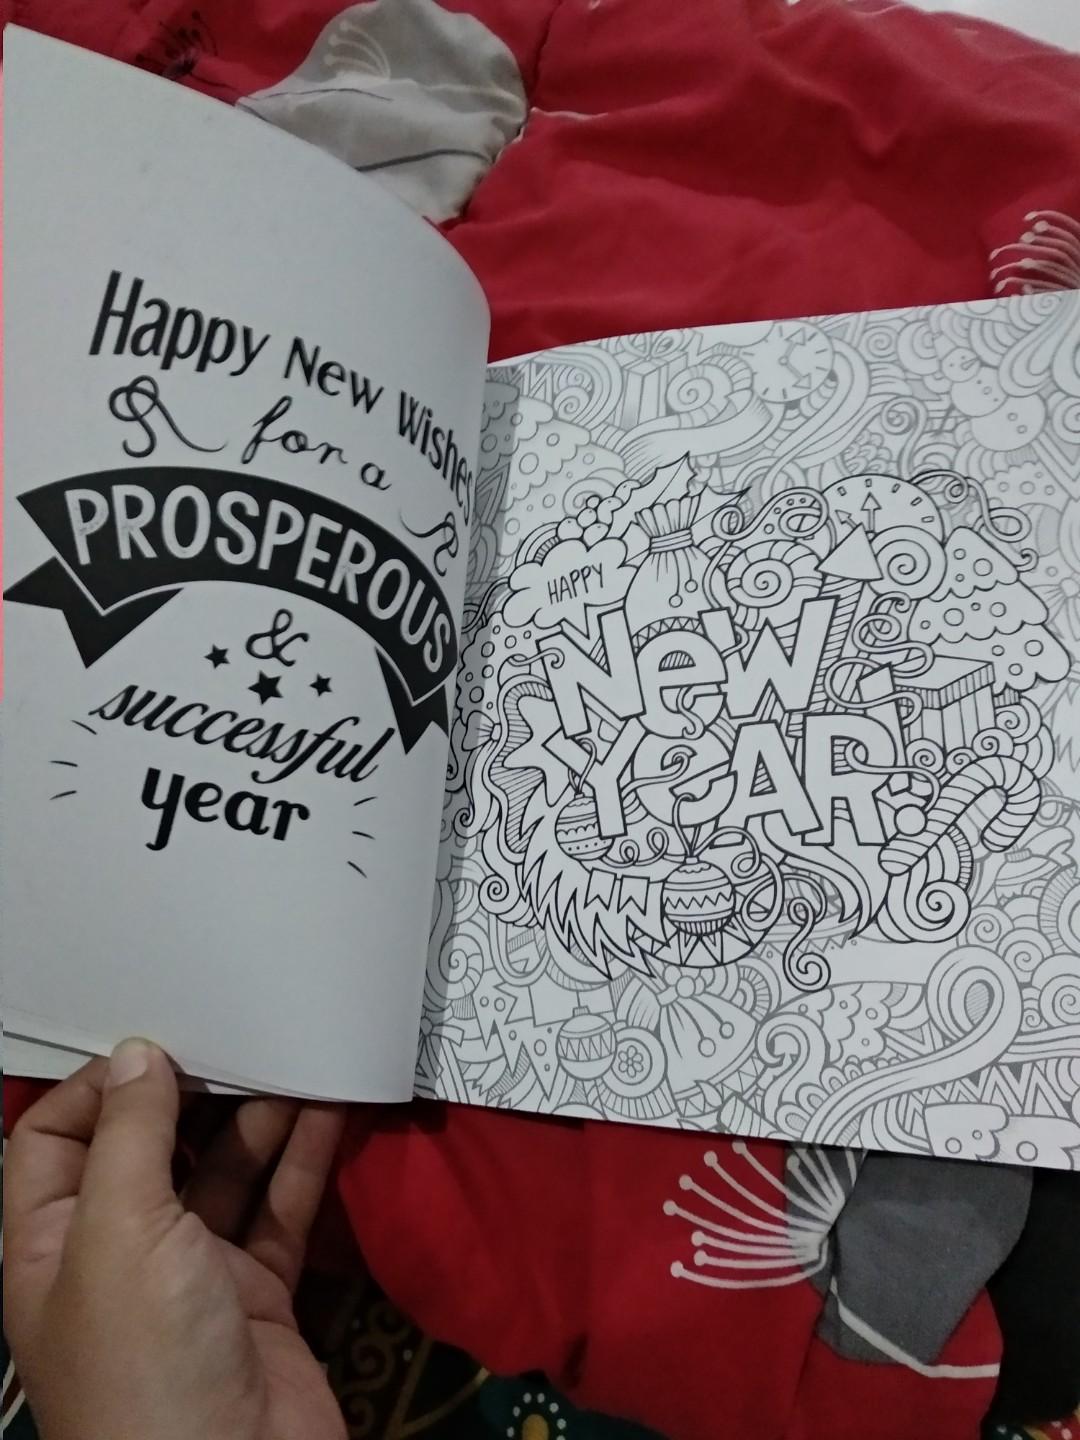 Happy New Wishes
for a
PROSPEROUS
&
successful
year
HAPPY
NeW
YeAR!